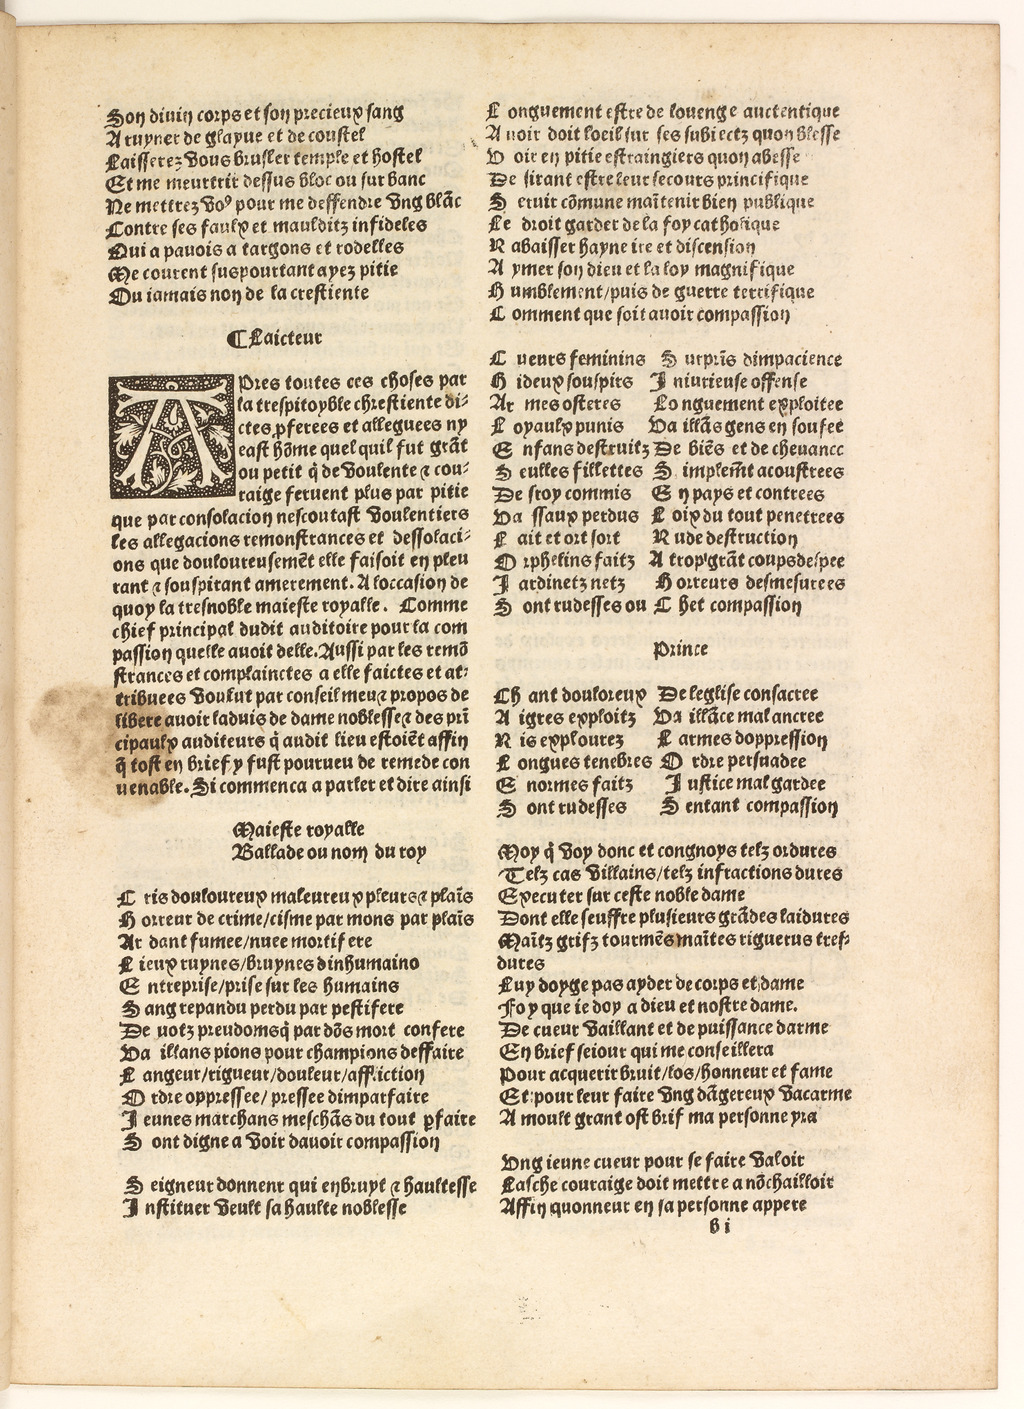 Son diuin corps et son precieux sang
A ruyner de glayue et de coustel
Laisserez vous brusler temple et hostel
Et me meurtrir dessus bloc ou sur banc
Ne mettrez voꝰ pour me deffendre vng blãc
Contre ses faulx et maulditz infideles
Qui a pauois a targons et rodelles
Me courent suspourtant ayez pitie
Ou iamais non de la crestiente
¶ Laicteur
APres toutes ces choses par
la trespitoyble chrestiente di-
ctes ꝓferees et alleguees ny
east hõme quel quil fut grãt
ou petit q̃ de voulente & cou-
raige feruent plus par pitie
que par consolacion nescoutast voulentiers
les allegacions remonstrances et dessolaci-
ons que douloureusemẽt elle faisoit en pleu
rant & souspirant amerement. A loccasion de
quoy la tresnoble maieste royalle. Comme
chief principal dudit auditoire pour la com
passion quelle auoit delle. Aussi par les remõ
strances et complainctes a elle faictes et at-
tribuees voulut par conseil meu& propos de
libere auoir laduis de dame noblesse& des prĩ
cipaulx auditeurs q̃ audit lieu estoiẽt affin
q̃ tost en brief y fust pourueu de remede con
uenable. Si commenca a parler et dire ainsi
Maieste royalle
Ballade ou nom du roy
C ris douloureux maleureux pleurs& plaĩs
H orreur de crime/cisme par mons par plaĩs
Ar dant fumee/nuee mortifere
L ieux ruynes/bruynes dinhumaino
E ntreprise/prise sur les humains
S ang repandu perdu par pestifere
De uotz preudomsq̃ par dõs mort confere
Va illans pions pour champions deffaire
L angeur/rigueur/douleur/affliction
O rdre oppressee/ pressee dimparfaire
J eunes marchans meschãs du tout ꝑfaire
S ont digne a voir dauoir compassion
S eigneur donnent qui enbruyt & haultesse
J nstituer veult sa haulte noblesse
L onguement estre de louenge auctentique
A uoir doit loeil sur ses subiectz quon blesse
V oir en pitie estraingiers quon abesse
De sirant estre leur secours principique
S eruir cõmune maĩtenir bien publique
Le droit garder de la foy catholique
R abaisser hayne ire et discension
A ymer son dieu et la loy magnifique
H umblement/puis de guerre terrifique
C omment que soit auoir compassion
C ueurs feminins S urprĩs dimpacience
H ideux souspirs J niurieuse offense
Ar mes osteres Lo nguement exploitee
L oyaulx punis Va illãs gens en soufee
E nfans destruitz De biẽs et de cheuance
S eulles fillettes S implemẽt acoustrees
De stoy commis E n pays et contrees
Va ssaux perdus L oix du tout penetrees
L ait et ort sort R ude destruction
O rphelins faitz A trop grãt coups despee
J ardinetz netz H orreurs desmesurees
S ont rudesses ou C het compassion
Prince
Ch ant douloreux De leglise consacree
A igres exploitz Va illãce mal ancree
R is explourez L armes doppression
L ongues tenebres O rdre persuadee
E normes faitz J ustice mal gardee
S ont rudesses S entant compassion
Moy q̃ voy donc et congnoys telz ordures
Telz cas villains/telz infractions dures
Executer sur ceste noble dame
Dont elle seuffre plusieurs grãdes laidures
Maĩtz grifz tourmẽs maĩtes riguerus tres-
dures
Luy doyge pas ayder de corps et dame
Foy que ie doy a dieu et nostre dame.
De cueur vaillant et de puissance darme
En brief seiour qui me conseillera
Pour acquerir bruit/los/honneur et fame
Et pour leur faire vng dãgereux vacarme
A moult grant ost brif ma personne yra
Vng ieune cueur pour se faire valoir
Lasche couraige doit mettre a nõchailloir
Affin quonneur en sa personne appere
b i